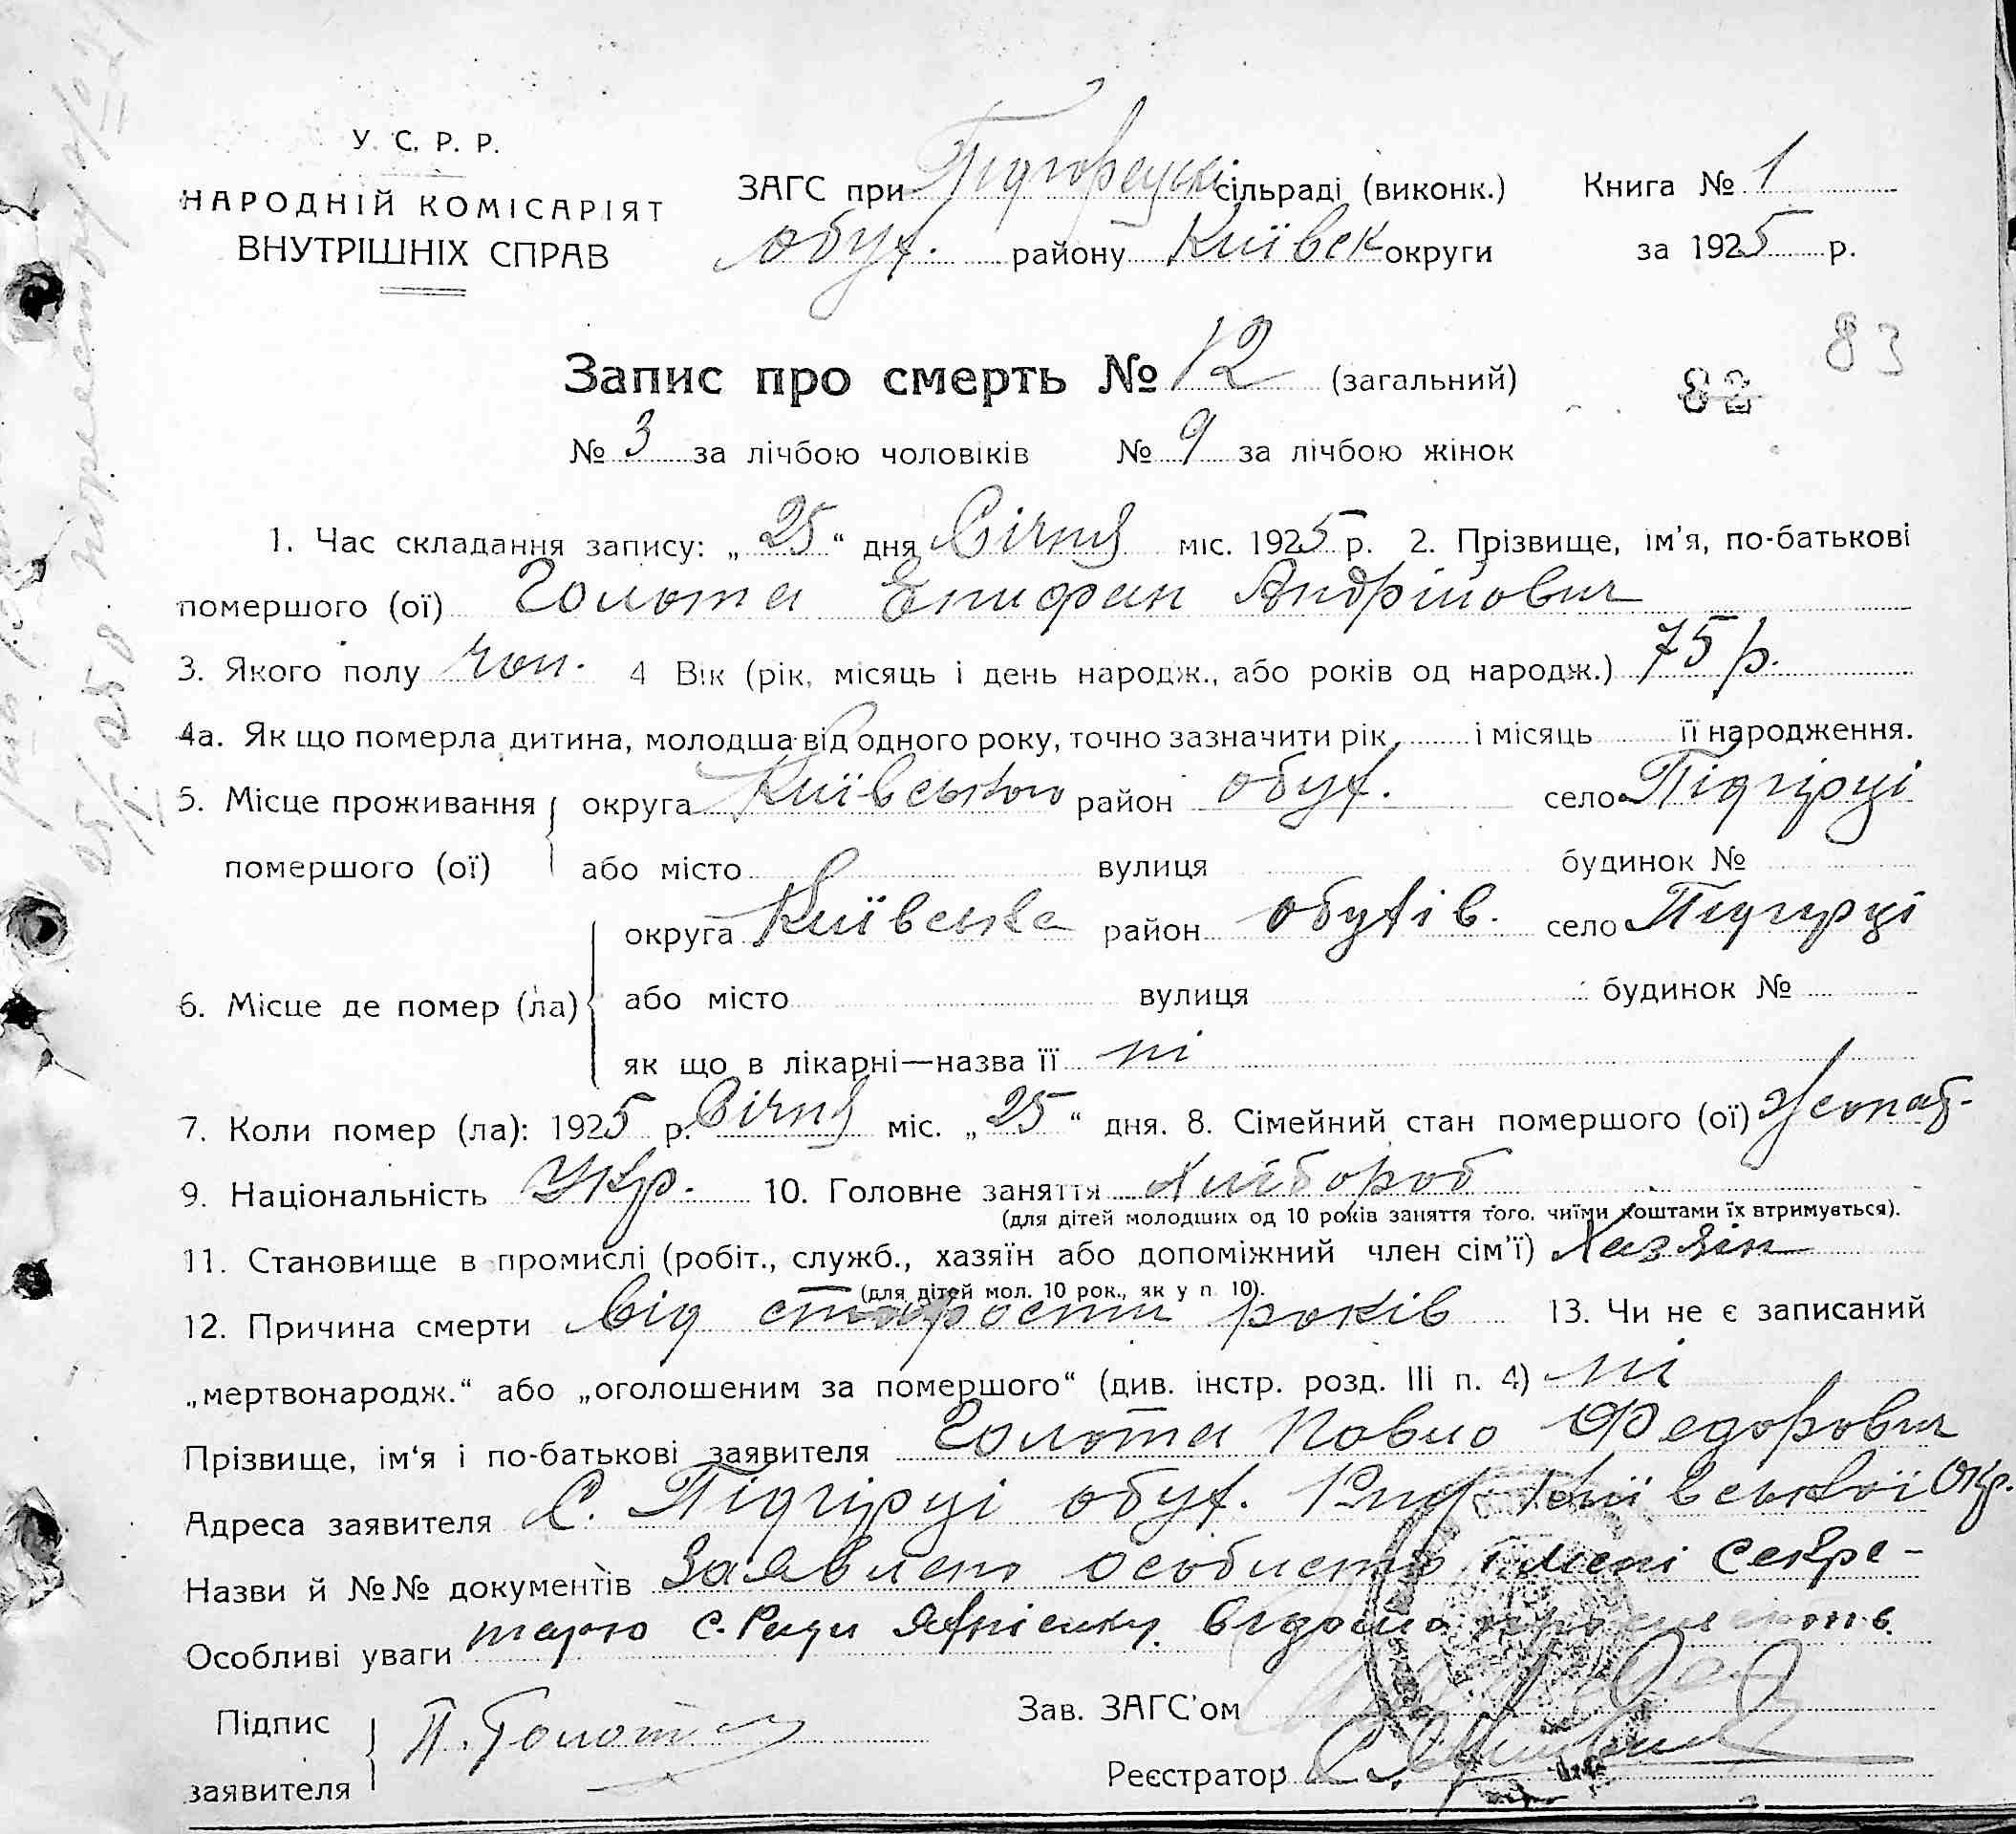 У. С. Р. Р.
НАРОДНІЙ КОМІСАРІЯТ
ВНУТРІШНІХ СПРАВ
ЗАГС при Підгорецькі сільраді (виконк.) Книга № 1
обух. району Київск округи за 1925 р.
Запис про смерть № 12 (загальний)
82 83
№ 3 за лічбою чоловіків № 9 за лічбою жінок
1. Час складання запису: „25“ дня Січня міс. 1925 р. 2. Прізвище, ім'я, по-батькові
помершого (ої) Голота Епифан Андрійович
3. Якого полу чол. 4 Вік (рік, місяць і день народж., або років од народж.) 75 р.
4а. Як що померла дитина, молодша від одного року, точно зазначити рік і місяць її народження.
5. Місце проживання округа Київського район обух. село Підгірці
помершого (ої) або місто вулиця будинок №
округа Київська район обухів. село Підгірці
6. Місце де помер (ла) або місто вулиця будинок №
як що в лікарні—назва її ні
7. Коли помер (ла): 1925 р. Січня міс. „25“ дня. 8. Сімейний стан помершого (ої) Жонат.
9. Національність Укр. 10. Головне заняття Хлібороб
(для дітей молодших од 10 років заняття того, чиїми коштами їх втримується).
11. Становище в промислі (робіт., служб., хазяїн або допоміжний член сім'ї) Хазяін
(для дітей мол. 10 рок., як у п. 10).
12. Причина смерти від старости років 13. Чи не є записаний
„мертвонародж.“ або „оголошеним за помершого“ (див. інстр. розд. III п. 4) ні
Прізвище, ім'я і по-батькові заявителя Голота Павло Федорович
Адреса заявителя С. Підгірці обух. Київської Окр.
Назви й №№ документів Заявлено особисто мені Секре-
Особливі уваги тарю с. Ради
Підпис заявителя П. Голота
Зав. ЗАГС'ом
Реєстратор